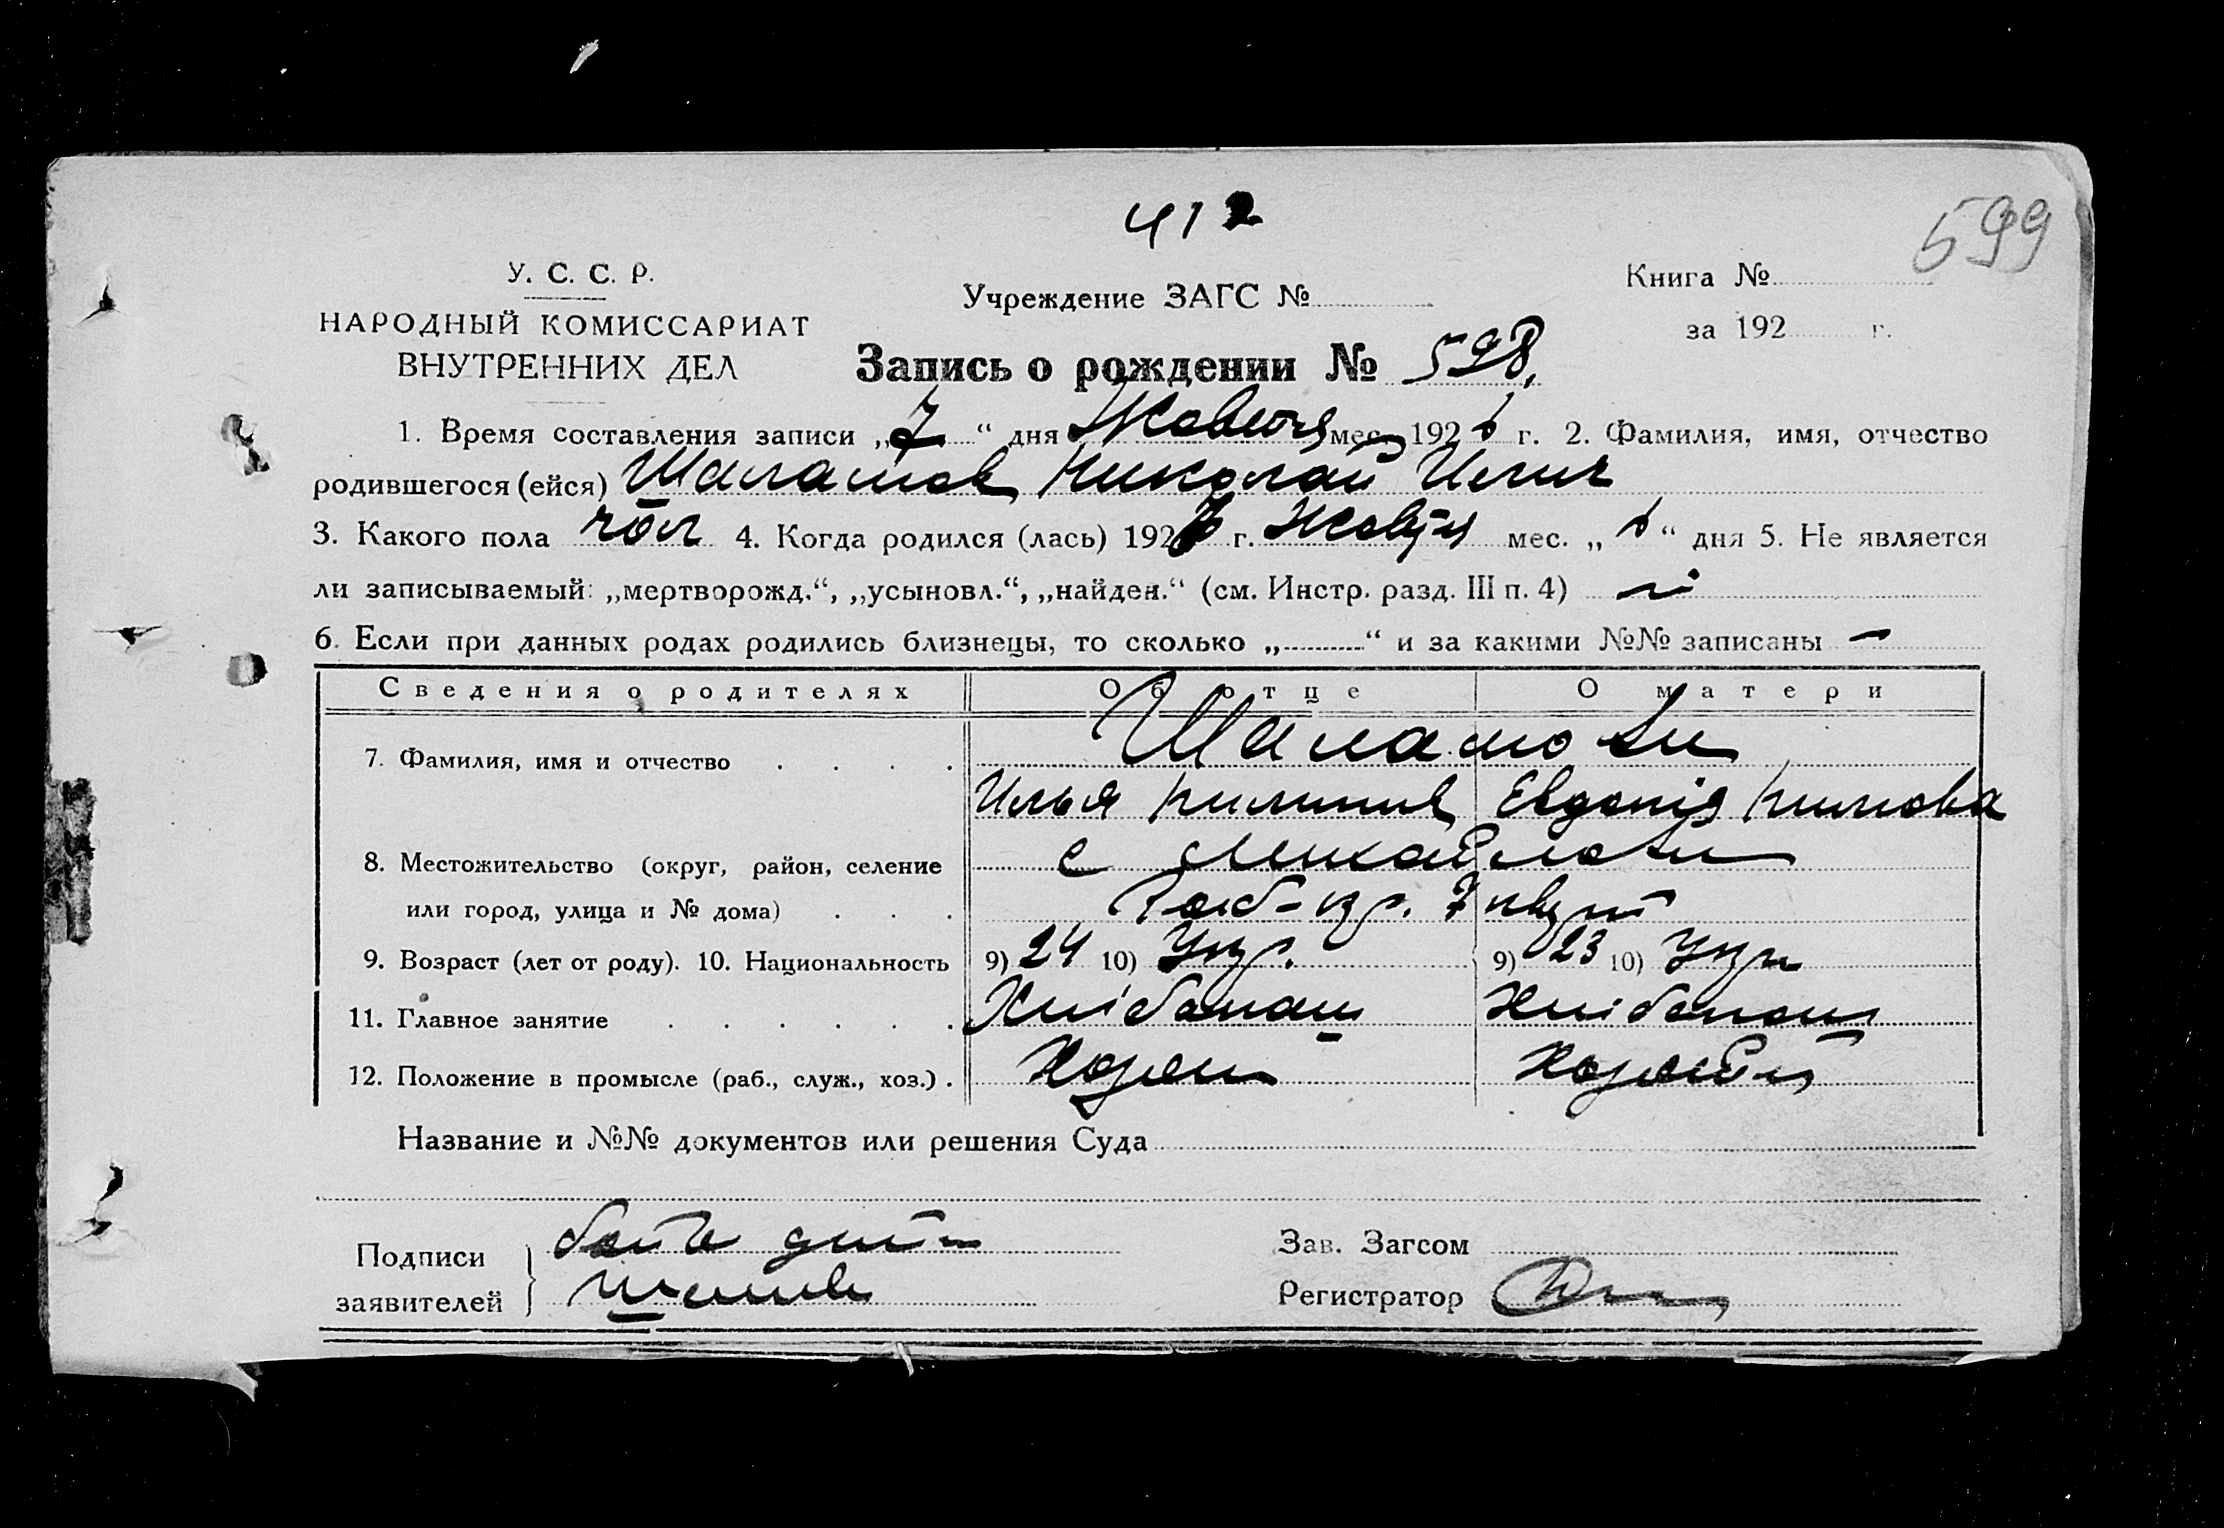 412
599
У. С. С. Р.
НАРОДНЫЙ КОМИССАРИАТ
ВНУТРЕННИХ ДЕЛ
Учреждение ЗАГС №
Книга №
за 192 г.
Запись о рождении № 598.
1. Время составления записи „7“ дня Жовтня мес. 192 г. 2. Фамилия, имя, отчество
родившегося (ейся) Шаламов Николай Илич
3. Какого пола чол 4. Когда родился (лась) 192 г. Жовтн мес. „ “ дня 5. Не является
ли записываемый: „мертворожд.“, „усыновл.“, „найден.“ (см. Инстр. разд. III п. 4) ні
6. Если при данных родах родились близнецы, то сколько „ “ и за какими №№ записаны —
Сведения о родителях Об отце О матери
7. Фамилия, имя и отчество Шаламови
Илья Евгенія
8. Местожительство (округ, район, селение с Михайловки
или город, улица и № дома) 7
9. Возраст (лет от роду). 10. Национальность 9) 24 10) Укр. 9) 23 10) Укр
11. Главное занятие Хлібопаш Хлібопаш
12. Положение в промысле (раб., служ., хоз.)
Название и №№ документов или решения Суда
Подписи
заявителей
Зав. Загсом
Регистратор